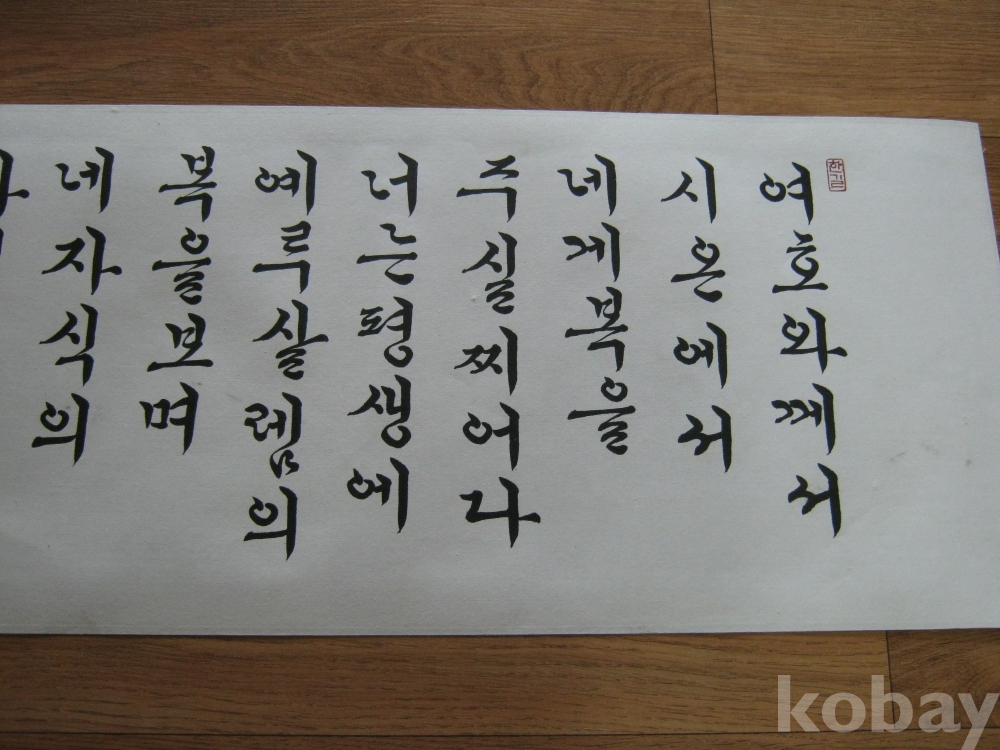 여호와께서
시온에서
네게복을
주실찌어다
너는평생에
예루살렘의
복을보며
네자식의
kobay